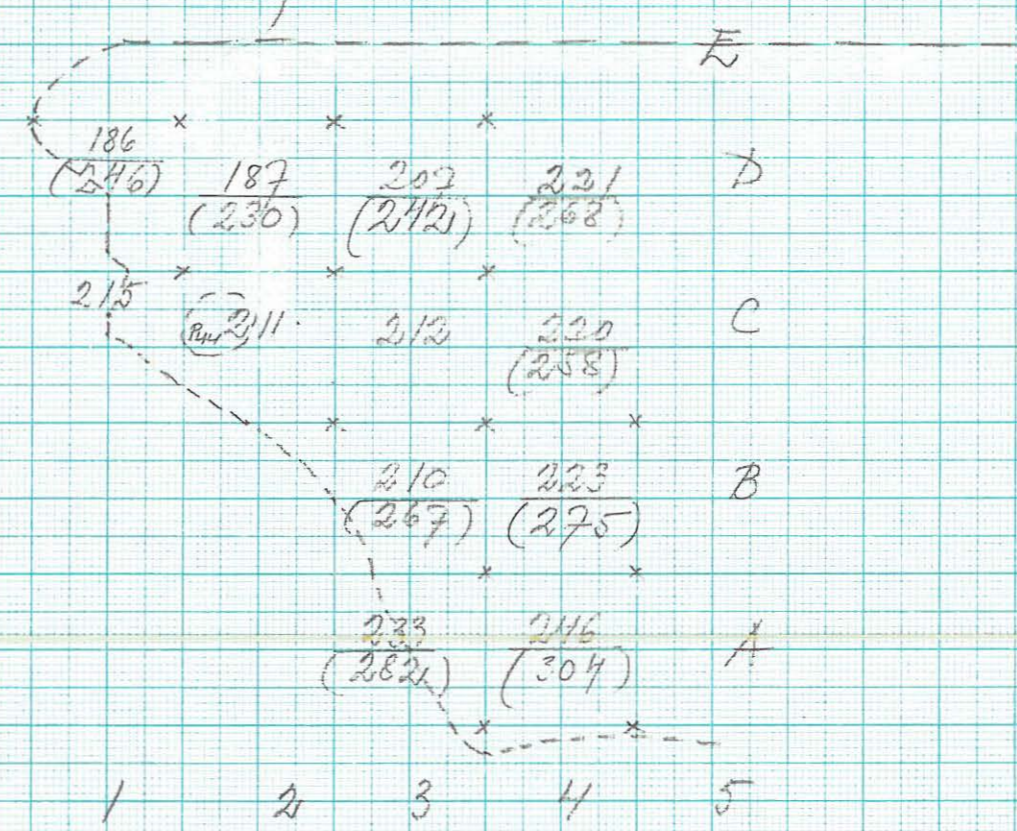 E
186
(246)
187
(230)
207
(242)
221
(268)
D
215
211
212
220
(258)
C
210
(267)
223
(275)
B
233
(282)
246
(304)
A
1 2 3 4 5